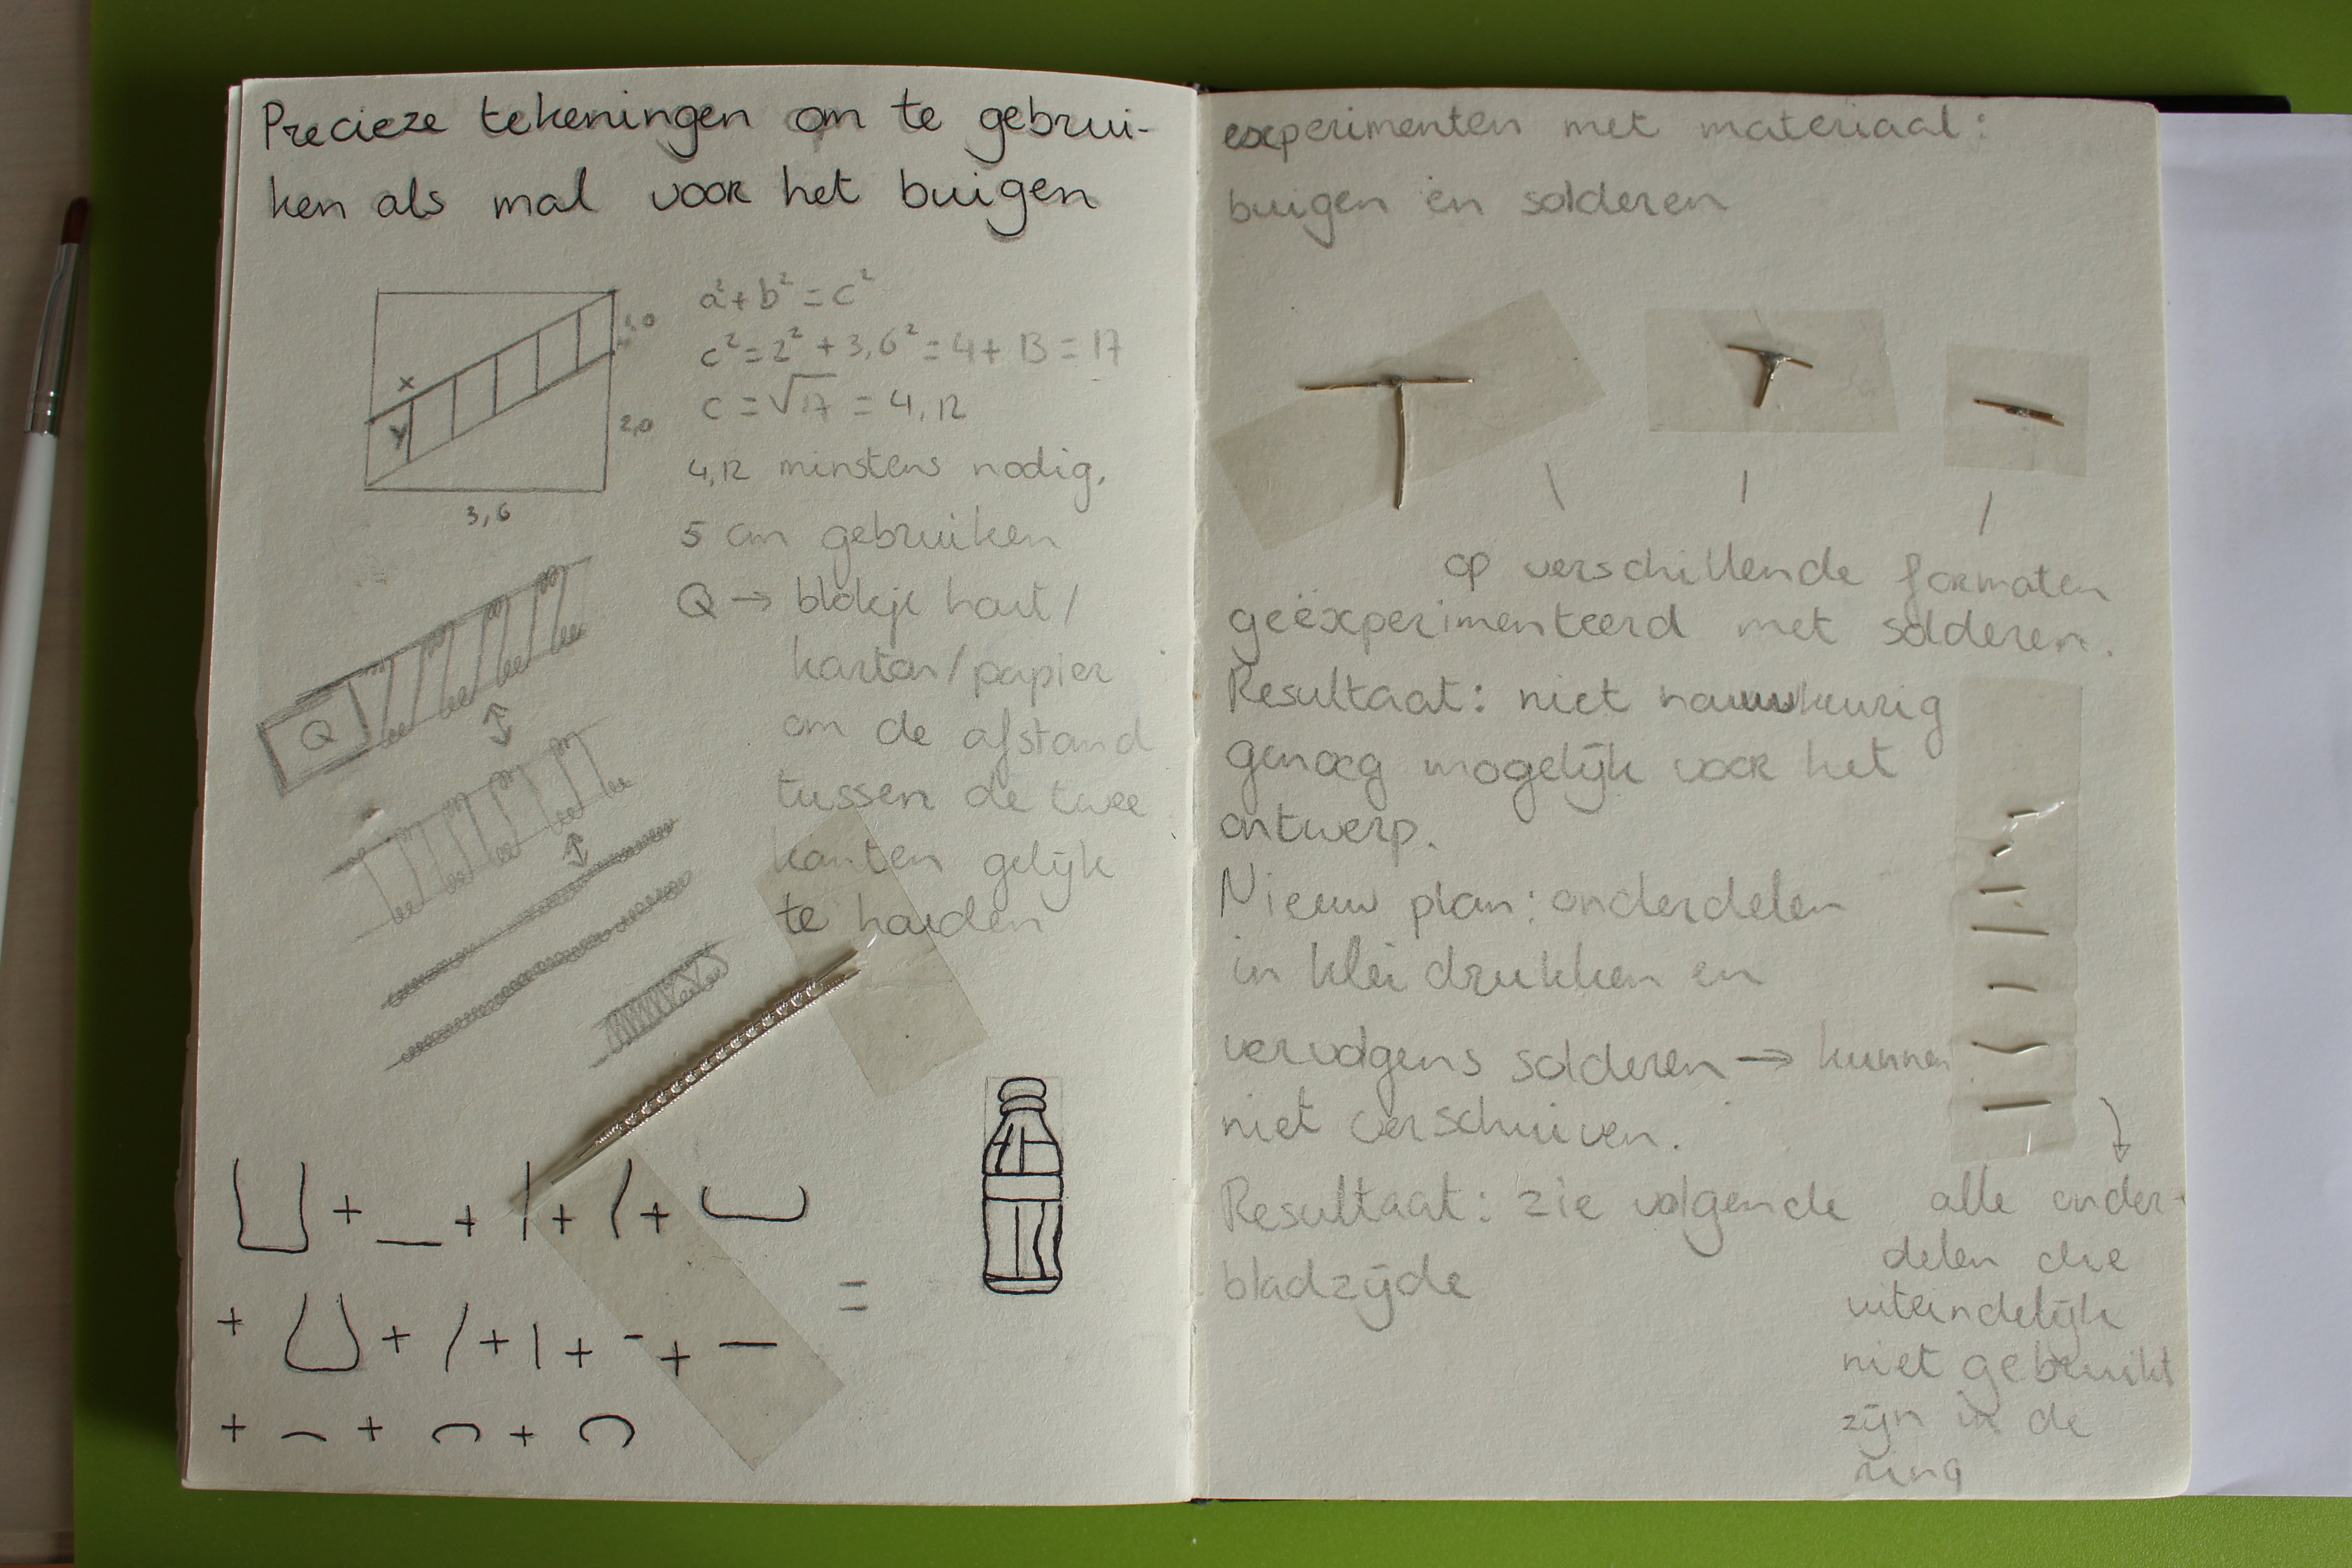 Precieze tekeningen om te gebrui-
ken als mal voor het buigen
a² + b² = c²
c² = 2² + 3,6² = 4 + 13 = 17
c = √17 = 4,12
4,12 minstens nodig,
5 cm gebruiken
Q → blokje hout/
karton/papier
om de afstand
tussen de twee
kanten gelijk
te houden
x
y
1,0
2,0
3,6
Q
+ + + +
=
+ + + + +
+ + +
experimenten met materiaal:
buigen en solderen
op verschillende formaten
geëxperimenteerd met solderen.
Resultaat: niet nauwkeurig
genoeg mogelijk voor het
ontwerp.
Nieuw plan: onderdelen
in klei drukken en
vervolgens solderen → kunnen
niet verschuiven.
Resultaat: zie volgende
bladzijde
alle onder-
delen die
uiteindelijk
niet gebruikt
zijn in de
ring